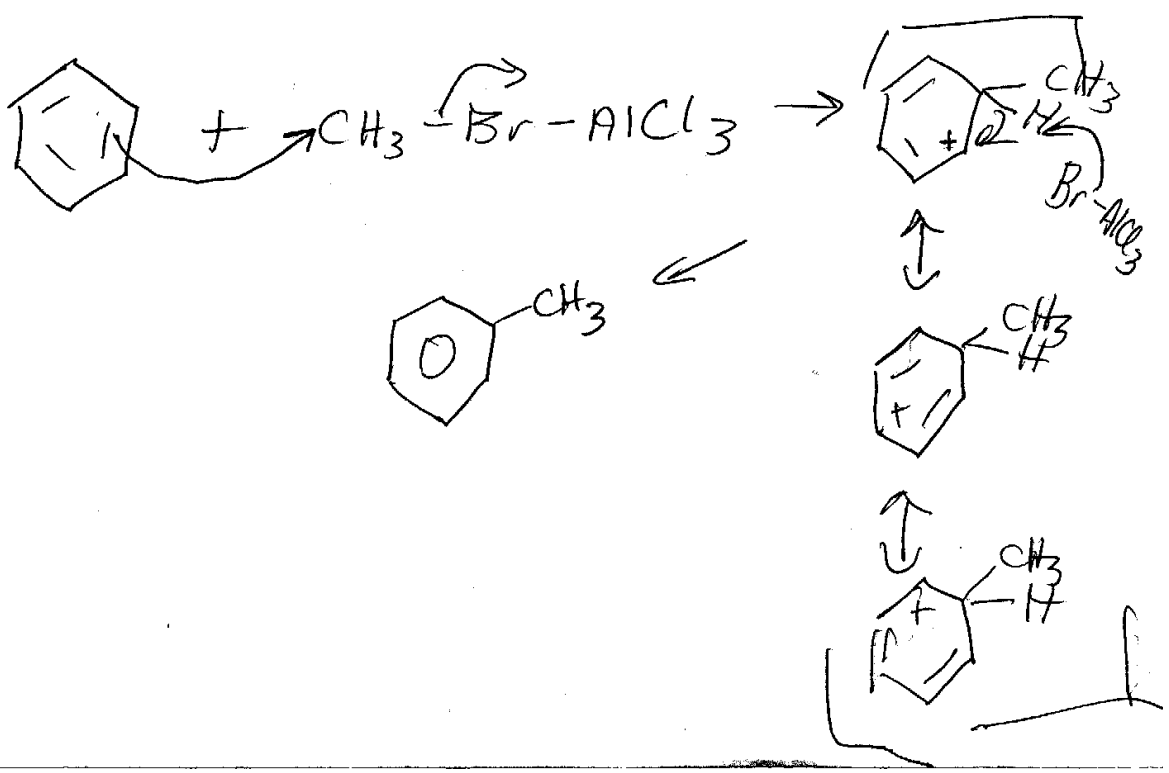 + CH3 - Br - AlCl3 →
CH3
H
+
Br - AlCl3
CH3
CH3
H
+
CH3
H
+